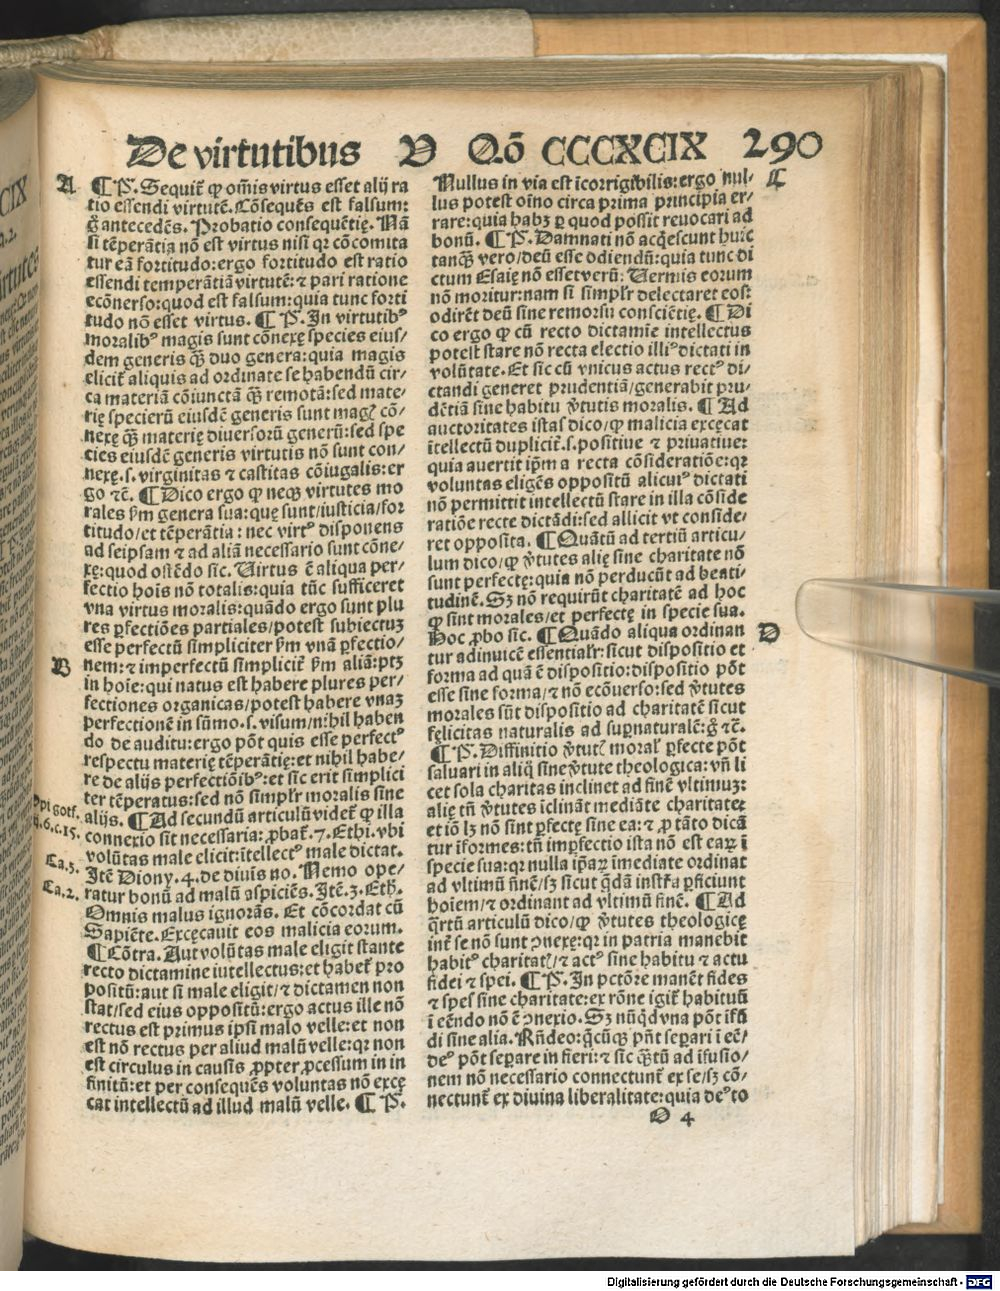 De virtutibus V Qō CCCXCIX 290
A ¶ P. Sequit̄ ꝙ om̄is virtus esset alij ra
tio essendi virtutē. Cōsequēs est falsum:
g̊ antecedēs. Probatio consequētię. Nā
si tēperātia nō est virtus nisi qr cōcomita
tur eā fortitudo: ergo fortitudo est ratio
essendi temperātiā virtutē: ⁊ pari ratione
ecōnerso: quod est falsum: quia tunc forti
tudo nō esset virtus. ¶ P. In virtutibꝰ
moralibꝰ magis sunt cōnexę species eius/
dem generis q̄ꝫ duo genera: quia magis
elicit̄ aliquis ad ordinate se habendū cir/
ca materiā cōiunctā q̄ꝫ remotā: sed mate/
rię specierū eiusdē generis sunt magꝭ cō/
nexę q̄ꝫ materię diuersorū generū: sed spe
cies eiusdē generis virtutis nō sunt con/
nexę. s. virginitas ⁊ castitas cōiugalis: er
go ⁊c̄. ¶ Dico ergo ꝙ neqꝫ virtutes mo
rales ẜm genera sua: quę sunt/iusticia/for
titudo/et tēperātia: nec virtꝰ disponens
ad seipsam ⁊ ad aliā necessario sunt cōne/
xę: quod ostēdo sic. Uirtus ē aliqua per/
fectio hois nō totalis: quia tūc sufficeret
vna virtus moralis: quādo ergo sunt plu
res ꝑfectiōes partiales/potest subiectuꝫ
esse perfectū simpliciter ẜm vnā ꝑfectio/
B nem: ⁊ imperfectū simplicit̄ ẜm aliā: ptꝫ
in hoīe: qui natus est habere plures per/
fectiones organicas/potest habere vnaꝫ
perfectionē in sūmo. s. visum/nihil haben
do de auditu: ergo pōt quis esse perfectꝰ
respectu materię tēperātię: et nihil habe/
re de alijs perfectiōibꝰ: et sic erit simplici
ter tēperatus: sed nō simplr̄ moralis sine
Ppi gotf. alijs. ¶ Ad secundū articulū videt̄ ꝙ illa
q. 6. c. 15. connexio sit necessaria: ꝓbat̄. 7. Ethi. vbi
volūtas male elicit: ītellectꝰ male dictat.
Ca. 5. Itē Diony. 4. de diuīs no. Nemo ope/
Ca. 2. ratur bonū ad malū aspiciēs. Itē. 3. Eth̄.
Omnis malus ignorās. Et cōcordat cū
Sapiēte. Excęcauit eos malicia eorum.
¶ Cōtra. Aut volūtas male eligit stante
recto dictamine iutellectus: et habet̄ pro
positū: aut si male eligit/⁊ dictamen non
stat/sed eius oppositū: ergo actus ille nō
rectus est primus ipsi malo velle: et non
est nō rectus per aliud malū velle: qr non
est circulus in causis ꝓpter ꝓcessum in in
finitū: et per consequēs voluntas nō excę
cat intellectū ad illud malū velle. ¶ P.
Nullus in via est īcorrigibilis: ergo nul/ C
lus potest oīno circa prima principia er/
rare: quia habꝫ ꝑ quod possit reuocari ad
bonū. ¶ P. Damnati nō acq̇escunt huic
tanq̄ꝫ vero/deū esse odiendū: quia tunc di
ctum Esaię nō esset verū: Uermis eorum
nō moritur: nam si simplr̄ delectaret eos:
odirēt deū sine remorsu consciētię. ¶ Di
co ergo ꝙ cū recto dictamīe intellectus
potest stare nō recta electio illiꝰ dictati in
volūtate. Et sic cū vnicus actus rectꝰ di/
ctandi generet prudentiā/generabit pru/
dētiā sine habitu v̄tutis moralis. ¶ Ad
auctoritates istas dico/ꝙ malicia excęcat
ītellectū duplicit̄. s. positiue ⁊ priuatiue:
quia auertit ip̄m a recta cōsideratiōe: qr
voluntas eligēs oppositū alicuiꝰ dictati
nō permittit intellectū stare in illa cōside
ratiōe recte dictādi: sed allicit vt conside/
ret opposita. ¶ Quātū ad tertiū articu/
lum dico/ꝙ v̄tutes alię sine charitate nō
sunt perfectę: quia nō perducūt ad beati/
tudinē. Sꝫ nō requirūt charitatē ad hoc
ꝙ sint morales/et perfectę in specie sua.
Hoc ꝓbo sic. ¶ Quādo aliqua ordinan D
tur adinuicē essentialr̄: sicut dispositio et
forma ad quā ē dispositio: dispositio pōt
esse sine forma/⁊ nō ecōuerso: sed v̄tutes
morales sūt dispositio ad charitatē sicut
fęlicitas naturalis ad suꝑnaturalē: g̊ ⁊c̄.
¶ P. Diffinitio v̄tutꝭ moral̄ ꝑfecte pōt
saluari in aliq̄ sine v̄tute theologica: vn̄ li
cet sola charitas inclinet ad finē vltimuꝫ:
alię tn̄ v̄tutes īclināt mediāte charitate:
et iō lꝫ nō sint ꝑfectę sine ea: ⁊ ꝓ tāto dicā
tur īformes: tn̄ imꝑfectio ista nō est eaꝝ ī
specie sua: qr nulla ip̄aꝝ īmediate ordinat
ad vltimū finē/sꝫ sicut q̄dā instr̄a ꝑficiunt
hoīem/⁊ ordinant ad vltimū finē. ¶ Ad
q̄rtū articulū dico/ꝙ v̄tutes theologicę
int̄ se nō sunt ꝯnexę: qr in patria manebit
habitꝰ charitatꝭ/⁊ actꝰ sine habitu ⁊ actu
fidei ⁊ spei. ¶ P. In pctōre manēt fides
⁊ spes sine charitate: ex rōne igit̄ habituū
ī eēndo nō ē ꝯnexio. Sꝫ nūq̇d vna pōt īfū
di sine alia. Rn̄deo: q̄cūqꝫ pn̄t seꝑari ī eē/
deꝰ pōt seꝑare in fieri: ⁊ sic q̄ꝫtū ad īfusio/
nem nō necessario connectunt̄ ex se/sꝫ cō/
nectunt̄ ex diuina liberalitate: quia deꝰ to
O 4
Digitalisierung gefördert durch die Deutsche Forschungsgemeinschaft - DFG